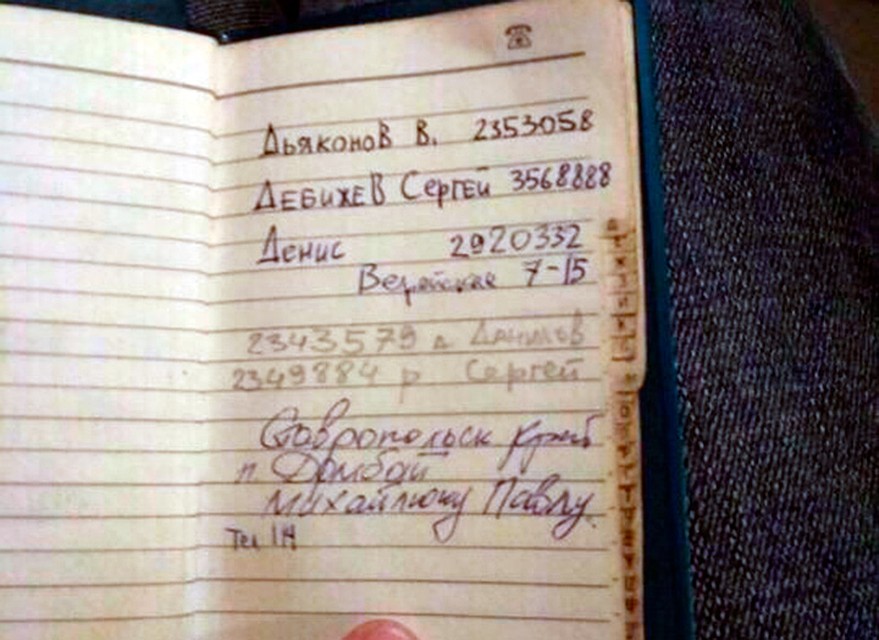 Дьяконов В. 2353058
Дебижев Сергей 3568888
Денис 2920332
Верейская 7-15
2343579 д Данилов
2349884 р Сергей
Ставропольск край
п. Домбай
Михайлюку Павлу
Тел 114